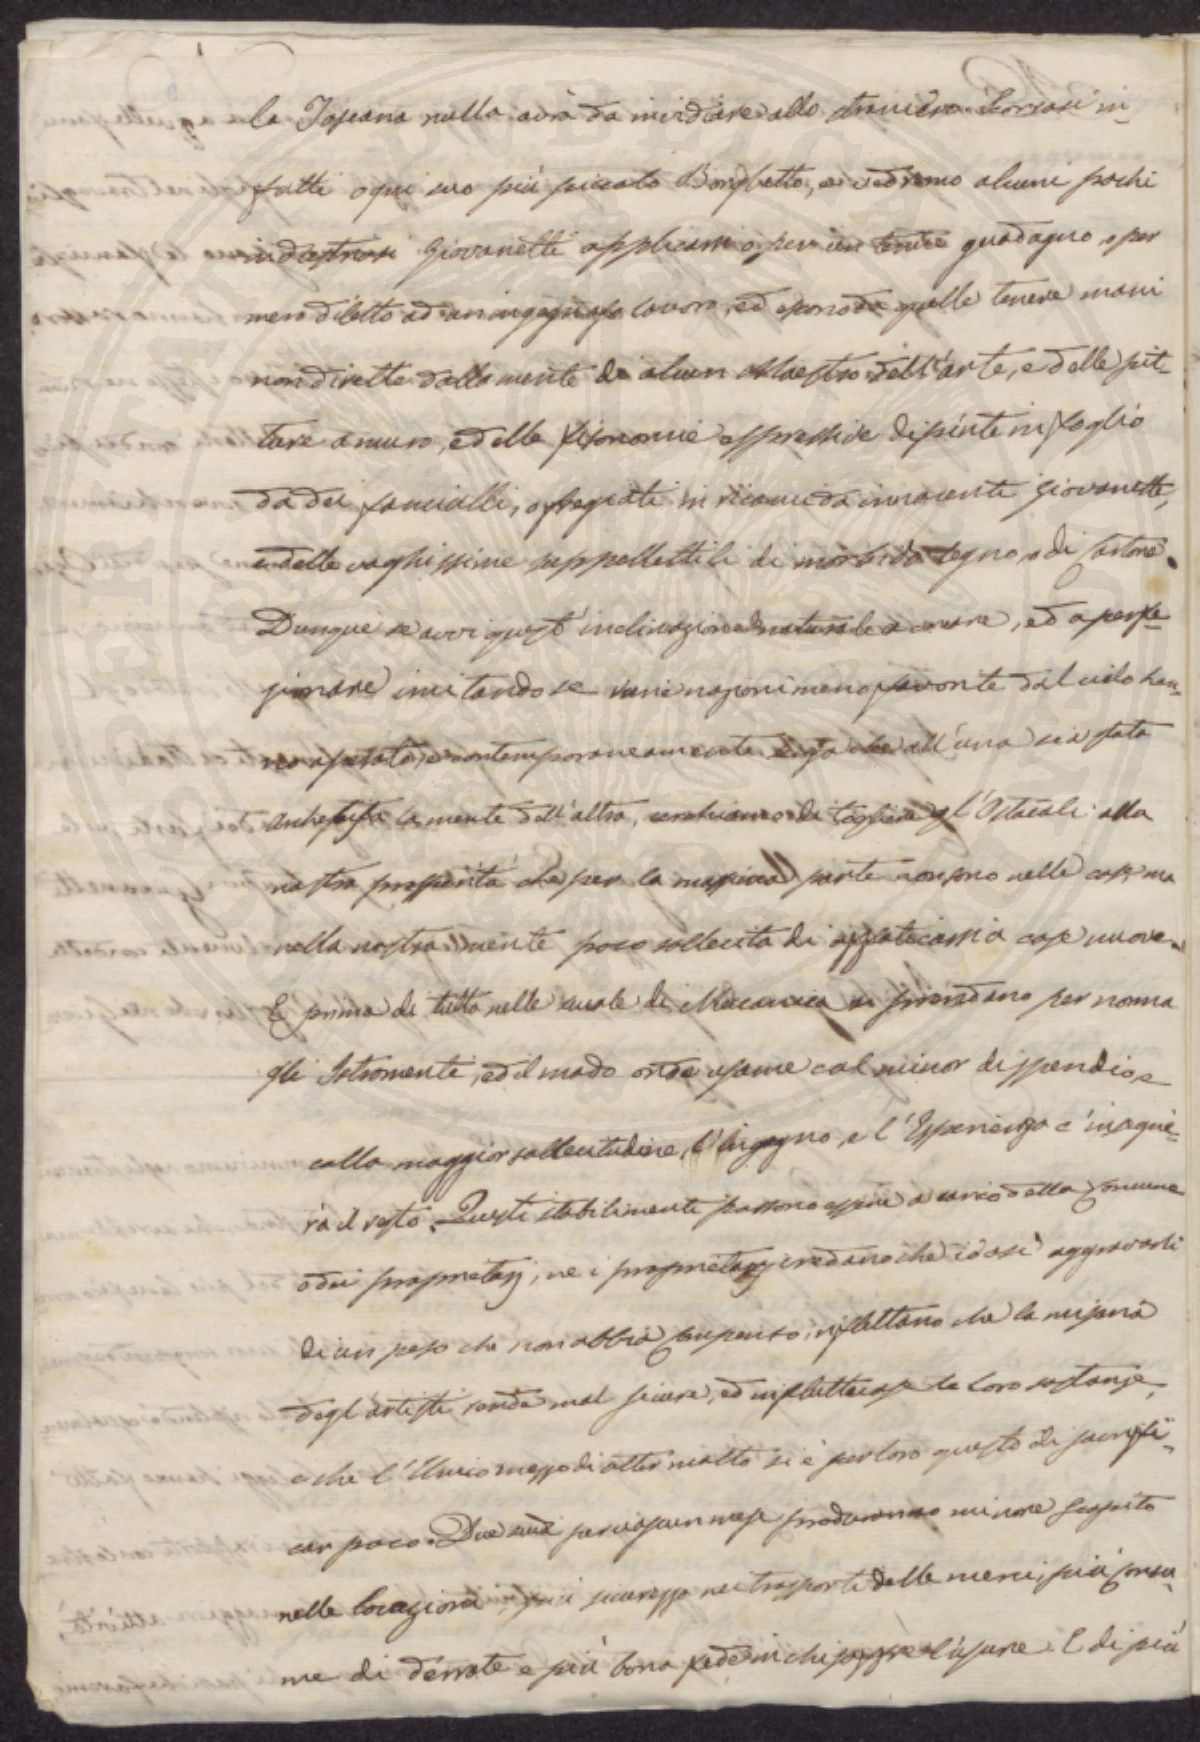 la Toscana nulla avrà da invidiare allo straniero. Scorrasi in-
fatti ogni suo più piccolo Borghetto, e vedremo alcuni pochi
industriosi Giovanetti applicarsi o per un tenue guadagno, o per
mero diletto ad un ingegnoso lavoro, ed escono da quelle tenere mani
non dirette dalla mente di alcun Maestro dell'arte, e delle pit-
ture a muro, ed elle fisonomie espressive dipinte in foglio
da dei fanciulli, o fregiate in ricami da innocenti Giovanette,
e delle vaghissime suppellettili di morbido legno, o di cartone.
Dunque se avvi quest'inclinazione naturale a creare, ed a perfe-
zionare imitando se varie nazioni meno favorite dal cielo han-
no operato contemporaneamente senza che all'una sia stata
la mente dell'altra, cerchiamo di togliere gl'Ostacoli alla
nostra prosperità che per la massima parte non sono nelle cose ma
nella nostra mente poco sollecita di affaticarsi a cose nuove.
E prima di tutto nelle scuole di Meccanica si prendano per norma
gli Istromenti, ed il modo onde usarne col minor dispendio e
colla maggior sollecitudine, l'Ingegno, e l'Esperienza c'insegne-
rà il resto. Questi stabilimenti possono essere a carico della Comune
o dei proprietarj, ne i proprietarj credano che ciò sia aggravarli
di un peso che non abbia compenso; riflettano che la miseria
degl'artisti rende mal sicure, ed infruttuose le loro sostanze,
e che l'Unico mezzo di otter molto si è per loro questo di sacrifi-
car poco. Due scudi per ciascun mese produrranno minore scapito
nelle locazioni, più sicurezza nei trasporti delle merci, più consu-
mo di derrate e più bona fede in chi l'usare. E di più